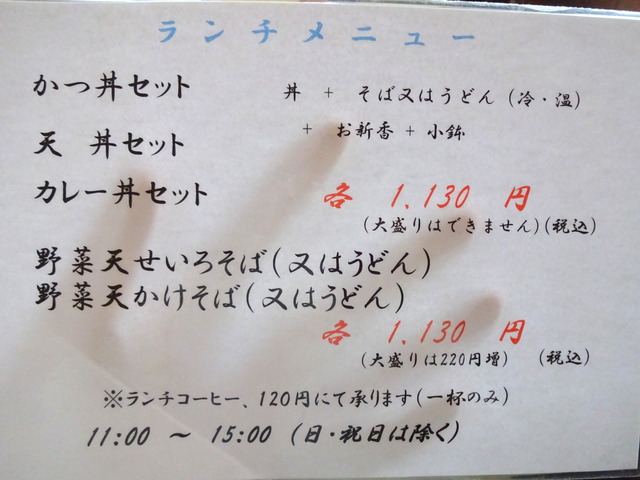 ランチメニュー
かつ丼セット　丼 + そば又はうどん (冷・温)
+ お新香 + 小鉢
天　丼セット
カレー丼セット　各 1,130 円
(大盛りはできません)(税込)
野菜天せいろそば(又はうどん)
野菜天かけそば(又はうどん)
各 1,130 円
(大盛りは220円増)　(税込)
※ランチコーヒー、120円にて承ります(一杯のみ)
11:00 ～ 15:00 (日・祝日は除く)